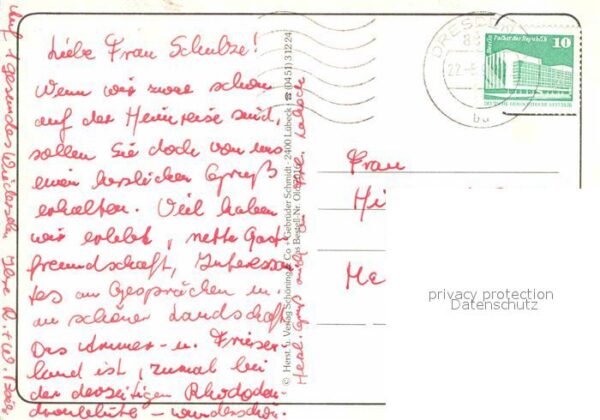 Liebe Frau Schulze!
Wenn wir zwar schon
auf der Heimreise sind,
sollen Sie doch von uns
einen herzlichen Gruß
erhalten. Viel haben
wir erlebt, nette Gast-
freundschaft, Interessan-
tes an Gesprächen u.
an schöner Landschaft.
Das Ammer- u. Frieser-
land ist, zumal bei
der derzeitigen Rhododen-
dronblüte - wunderschön.
Auf gesundes Wiedersehn Ihre
Herzl. Gruß auch an
© Herst. u. Verlag Schöning & Co + Gebrüder Schmidt · 2400 Lübeck ☎ (0451) 31224
Bestell-Nr.
DRESDEN
Berlin Palast der Republik
10
DEUTSCHE DEMOKRATISCHE REPUBLIK
Frau
privacy protection
Datenschutz